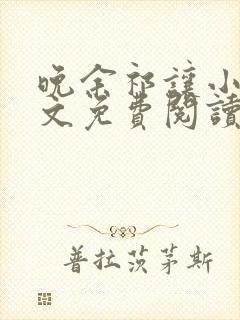 晚余祁讓小
文免費閱讀
普拉茨茅斯